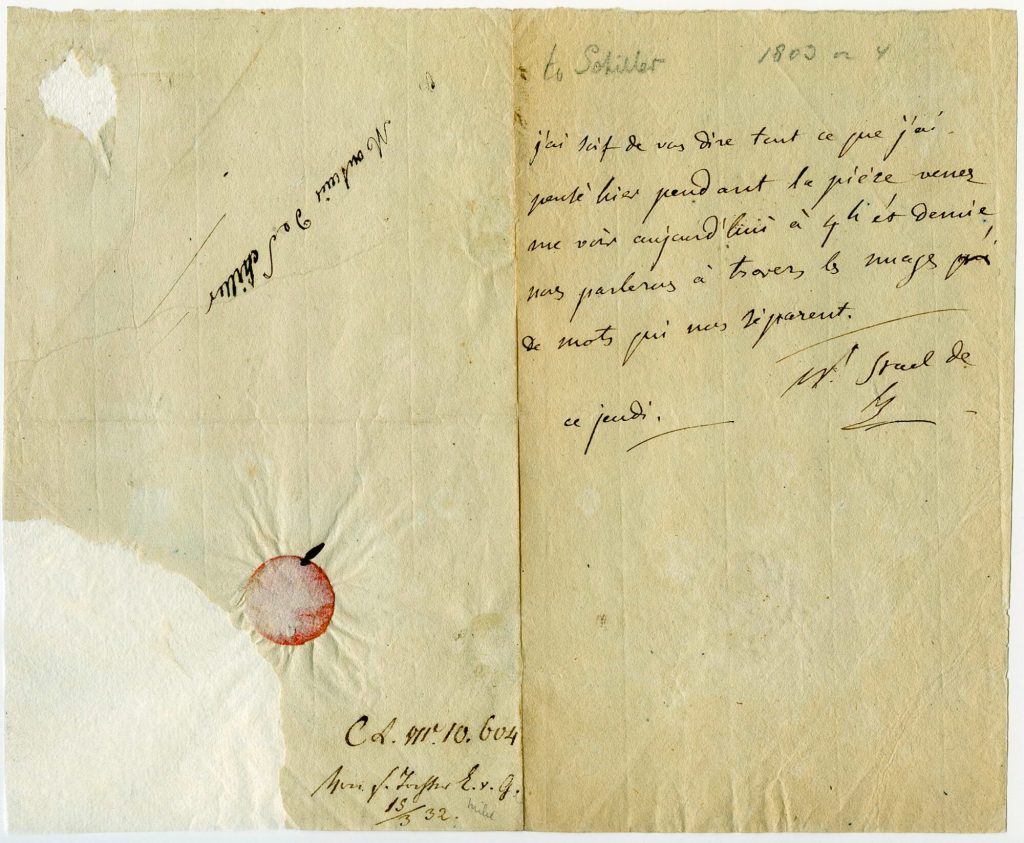 Monsieur de Schiller
C L. Nr. 10. 604
E. v. G.
15/3 32.
to Schiller 1803 or 4
j'ai soif de vous dire tout ce que j'ai
pensé hier pendant la pièce venez
me voir aujourd'hui à 4 h et demie,
nous parlerons à travers les nuages
de mots qui nous séparent.
Staël de
H
ce jeudi.